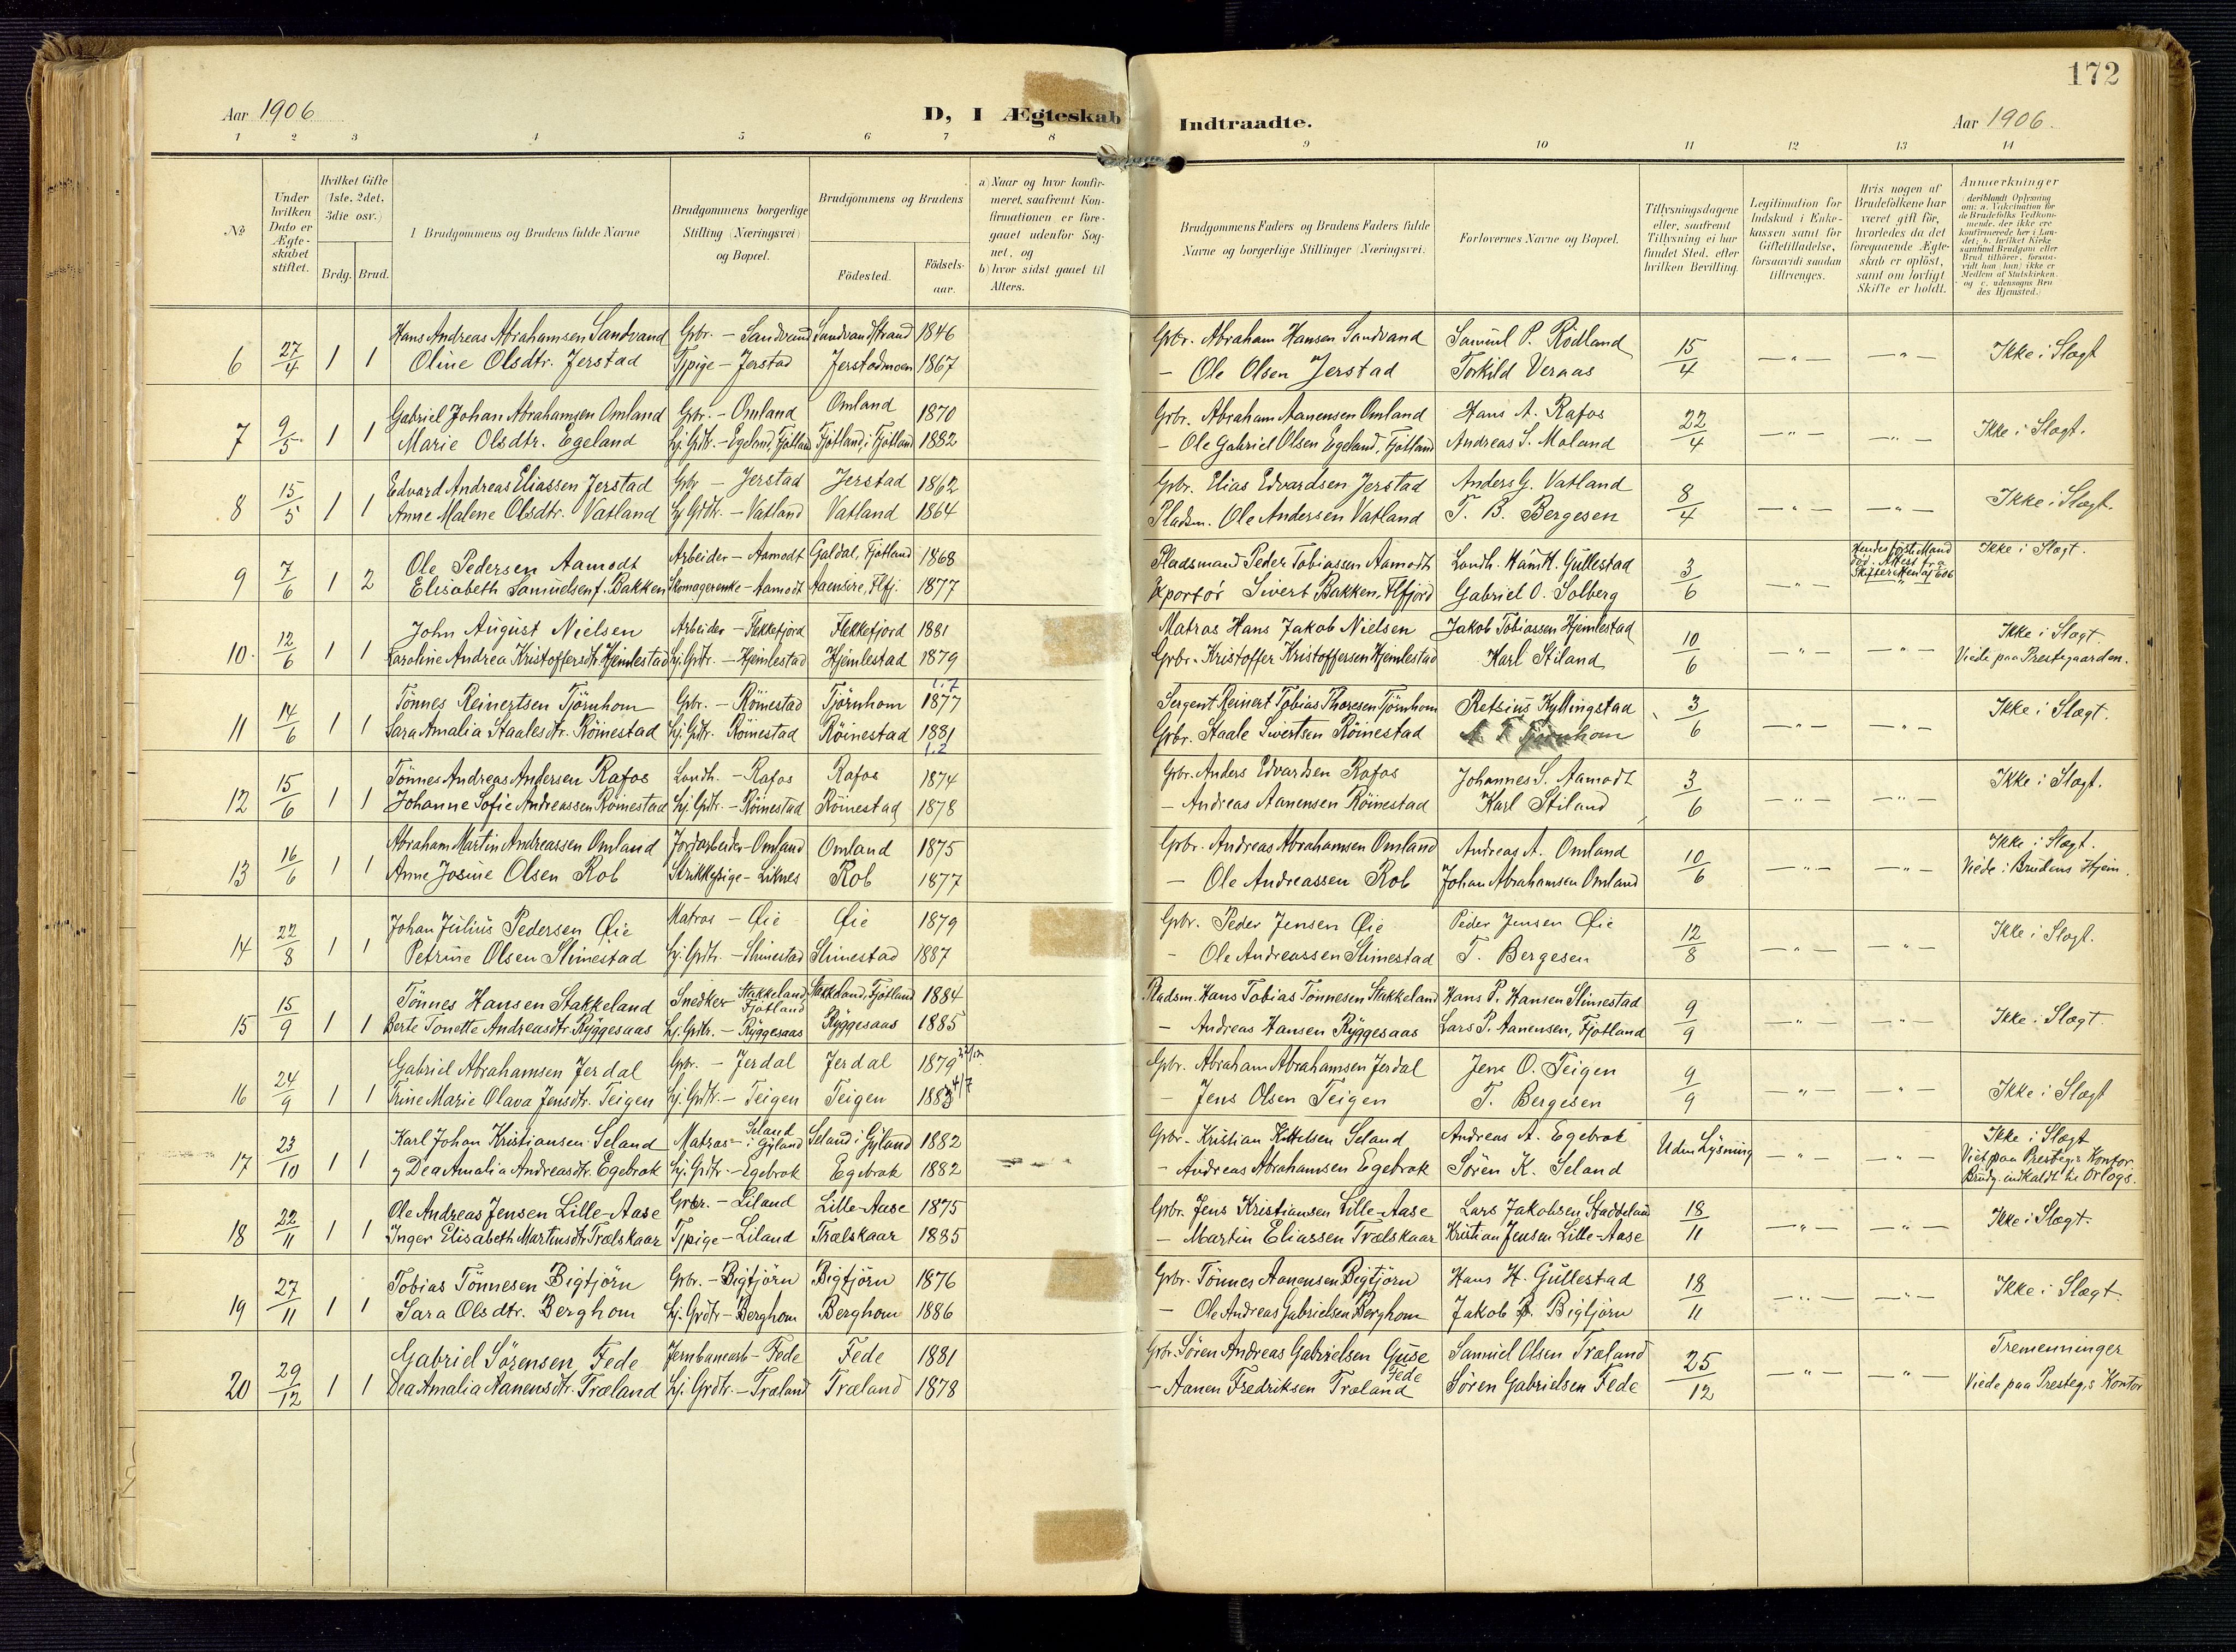 172
Aar 1906
D, I Ægteskab Indtraadte.
Aar 1906.
1 2 3 4 5 6 7 8 9 10 11 12 13 14
No
Under hvilken Dato er Ægteskabet stiftet.
Hvilket Gifte (1ste, 2det, 3die osv.)
Brdg. Brud.
Brudgommens og Brudens fulde Navne
Brudgommens borgerlige Stilling (Næringsvei) og Bopæl.
Brudgommens og Brudens
Födested.
Födsels-aar.
a) Naar og hvor konfirmeret, saafremt Konfirmationen er foregaaet udenfor Sognet, og
b) hvor sidst gaaet til Alters.
Brudgommens Faders og Brudens Faders fulde Navne og borgerlige Stillinger (Næringsvei).
Forlovernes Navne og Bopæl.
Tillysningsdagene eller, saafremt Tillysning ei har fundet Sted, efter hvilken Bevilling.
Legitimation for Indskud i Enkekassen samt for Giftetilladelse, forsaavidt saadan tiltrænges.
Hvis nogen af Brudefolkene har været gift för, hvorledes da det foregaaende Ægteskab er oplöst, samt om lovligt Skifte er holdt.
Anmærkninger (deriblandt Oplysning om: a. Vakcination for de Brudefolks Vedkommende, der ikke ere konfirmerede her i Landet; b. hvilket Kirkesamfund Brudgom eller Brud tilhörer, forsaavidt han (hun) ikke er Medlem af Statskirken. og c. udensogns Brudes Hjemsted.)
6 27/4 1 1 Hans Andreas Abrahamsen Sandvand Gbr. - Sandvand Sandvandstrand 1846 Gbr. Abraham Hansen Sandvand Samuel P. Rödland 15/4 Ikke i Slægt
Oline Olsdtr. Jerstad Tjpige - Jerstad Jerstadmoen 1867 - Ole Olsen Jerstad Torkild Veraas
7 9/5 1 1 Gabriel Johan Abrahamsen Omland Gbr. - Omland Omland 1870 Gbr. Abraham Aanensen Omland Hans A. Rafos 22/4 Ikke i Slægt.
Marie Olsdtr. Egeland Hj. Grdtr. - Egeland, Fjotland Fjotland i Fjotland 1882 - Ole Gabriel Olsen Egeland, Fjotland Andreas S. Moland
8 15/5 1 1 Edvard Andreas Eliassen Jerstad Gbr - Jerstad Jerstad 1862 Gbr. Elias Edvardsen Jerstad Anders G. Vatland 8/4 Ikke i Slægt.
Anne Malene Olsdtr. Vatland Hj Grdtr. - Vatland Vatland 1864 Pladsm. Ole Andersen Vatland T. B. Bergesen
9 7/6 1 2 Ole Pedersen Aamodt Arbeider - Aamodt Galdal, Fjotland 1868 Pladsmand Peder Tobiassen Aamodt Landh. Gullestad 3/6 Hendes förste Mand död. Attest fra Skifteretten Ikke i Slægt.
Elisabeth Samuelsen f. Bakken Skomagerenke - Aamodt Aaensire, Flfj. 1877 Sivert Bakken, Flfjord Gabriel O. Solberg
10. 12/6 1 1 John August Nielsen Arbeider - Flekkefjord Flekkefjord 1881 Matros Hans Jakob Nielsen Jakob Tobiassen Hjemlestad 10/6 Ikke i Slægt
Karoline Andrea Kristoffersdtr Hjemlestad Hj. Grdtr. - Hjemlestad Hjemlestad 1879 Gbr. Kristoffer Kristoffersen Hjemlestad Karl Stiland Viede paa Prestegaarden.
11 14/6 1 1 Tönnes Reinertsen Tjörnhom Gbr. - Röinestad Tjörnhom 1877 Sergent Reinert Tobias Thoresen Tjörnhom Retsius Kyllingstad 3/6 Ikke i Slægt.
Sara Amalia Staalesdtr. Röinestad Hj. Grdtr. Röinestad Röinestad 1881 Gbr. Staale Sivertsen Röinestad Tjörnhom
12 15/6 1 1 Tönnes Andreas Andersen Rafos Landh. - Rafos Rafos 1874 Gbr. Anders Edvardsen Rafos Johannes S. Aamodt 3/6 Ikke i Slægt.
Johanne Sofie Andreassen Röinestad Hj. Grdtr. - Röinestad Röinestad 1878 - Andreas Aanensen Röinestad Karl Stiland
13 16/6 1 1 Abraham Martin Andreassen Omland Jordarbeider - Omland Omland 1875 Gbr. Andreas Abrahamsen Omland Andreas A. Omland 10/6 Ikke i Slægt.
Anne Josine Olsen Rob Strikkepige - Liknes Rob 1877 - Ole Andreassen Rob Johan Abrahamsen Omland Viede i Brudens Hjem.
14 22/8 1 1 Johan Julius Pedersen Øie Matros - Øie Øie 1879 Gbr. Peder Jensen Øie Peder Jensen Øie 12/8 Ikke i Slægt.
Petrine Olsen Slimestad Hj. Grdtr. - Slimestad Slimestad 1887 - Ole Andreassen Slimestad T. Bergesen
15 15/9 1 1 Tönnes Hansen Stakkeland Snedker Stakkeland Fjotland Stakkeland i Fjotland 1884 Pladsm. Hans Tobias Tönnesen Stakkeland Hans P. Hansen Slimestad 9/9 Ikke i Slægt.
Berte Tonette Andreasdtr. Ryggesaas Hj. Grdtr. - Ryggesaas Ryggesaas 1885 - Andreas Hansen Ryggesaas Lars P. Aanensen, Fjotland
16 24/9 1 1 Gabriel Abrahamsen Jerdal Gbr. - Jerdal Jerdal 1879 Gbr. Abraham Abrahamsen Jerdal Jens O. Teigen 9/9 Ikke i Slægt
Trine Marie Olava Jensdtr. Teigen Hj. Grdtr. - Teigen Teigen 1883 4/7 - Jens Olsen Teigen T. Bergesen
17 23/10 1 1 Karl Johan Kristiansen Seland Matros - Seland i Gyland Seland i Gyland 1882 Gbr. Kristian Kittelsen Seland Andreas A. Egebrok Uden Lysning Ikke i Slægt
Dea Amalia Andreasdtr. Egebrok Hj. Grdtr. - Egebrok Egebrok 1882 - Andreas Abrahamsen Egebrok Sören K. Seland Viet paa Presteg.s Kontor. Brudg. indkaldt til Orlogs.
18 22/11 1 1 Ole Andreas Jensen Lille-Aase Gbr. - Liland Lille-Aase 1875 Gbr. Jens Kristiansen Lille-Aase Lars Jakobsen Staddeland 18/11 Ikke i Slægt.
Inger Elisabeth Martinsdtr Trælskaar Tjpige - Liland Trælskaar 1885 - Martin Eliassen Trælskaar Kristian Jensen Lille-Aase
19 27/11 1 1 Tobias Tönnesen Bigtjörn Gbr. - Bigtjörn Bigtjörn 1876 Gbr. Tönnes Aanensen Bigtjörn Hans H. Gullestad 18/11 Ikke i Slægt.
Sara Olsdtr. Berghom Hj. Grdtr - Berghom Berghom 1886 - Ole Andreas Gabrielsen Berghom Jakob Bigtjörn
20 29/12 1 1 Gabriel Sörensen Fede Jernbanearb - Fede Fede 1881 Gbr. Sören Andreas Gabrielsen Guse Fede Samuel Olsen Træland 25/12 Tremenninger
Dea Amalia Aanensdtr. Træland Hj. Grdtr. - Træland Træland 1878 - Aanen Fredriksen Træland Sören Gabrielsen Fede Viede paa Presteg.s Kontor